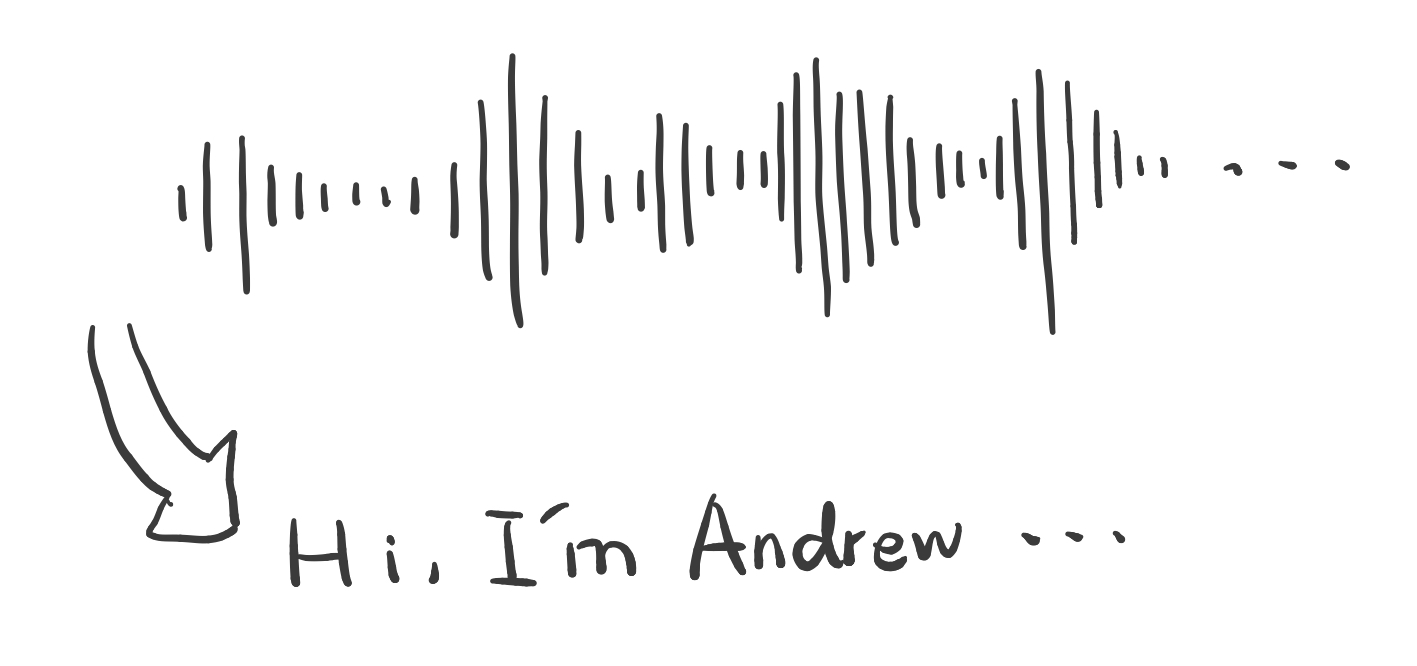 Hi, I'm Andrew ...